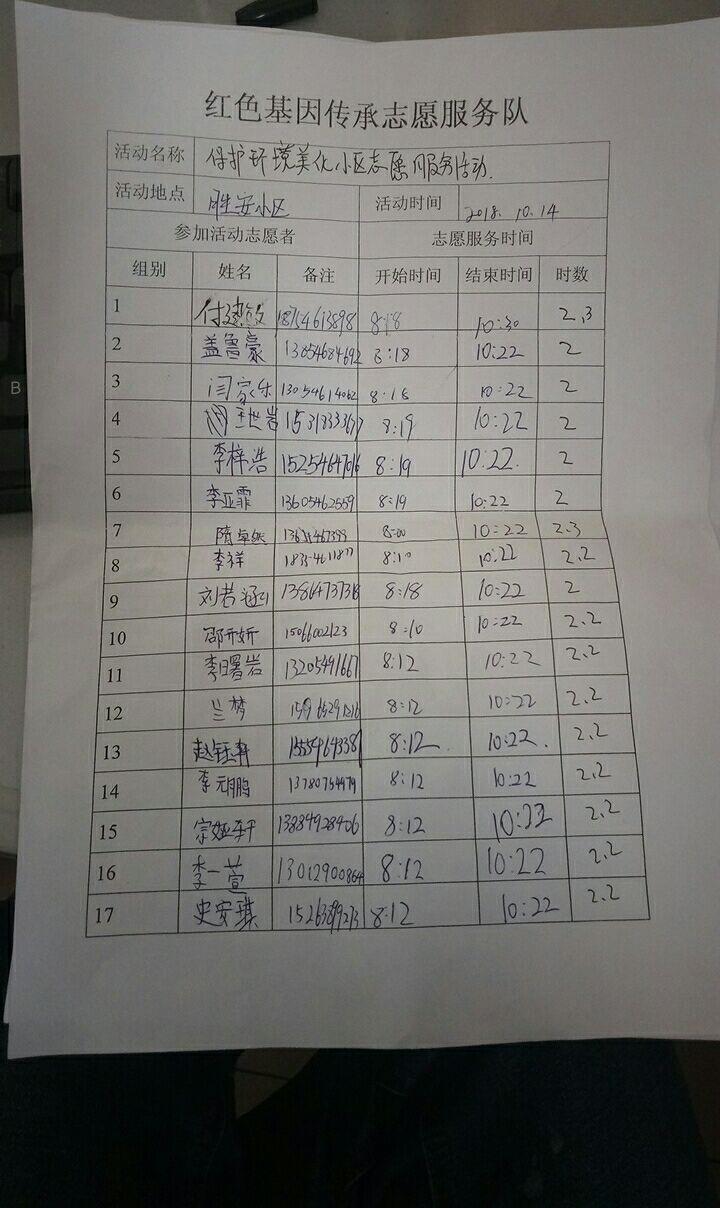 红色基因传承志愿服务队
活动名称 保护环境美化小区志愿服务活动.
活动地点 胜安小区 活动时间 2018. 10. 14
参加活动志愿者 志愿服务时间
组别 姓名 备注 开始时间 结束时间 时数
1 18754613898 8:18 10:30 2.3
2 盖鲁豪 13054684692 8:18 10:22 2
3 闫家乐 13054614062 8:18 10:22 2
4 8:19 10:22 2
5 李梓浩 15254647016 8:19 10:22. 2
6 李亚霏 13605462559 8:19 10:22 2
7 隋卓然 8:00 10:22 2.3
8 李祥 8:10 10:22 2.2
9 刘若涵 8:18 10:22 2
10 邵开妍 15066002123 8:10 10:22 2.2
11 李曙岩 13205491667 8:12 10:22 2.2
12 兰梦 8:12 10:22 2.2
13 赵钰轩 8:12. 10:22. 2.2
14 李元鹏 8:12 10:22 2.2
15 宗娅轩 13884928406 8:12 10:22 2.2
16 李一萱 13012900864 8:12 10:22 2.2
17 史安琪 8:12 10:22 2.2
B